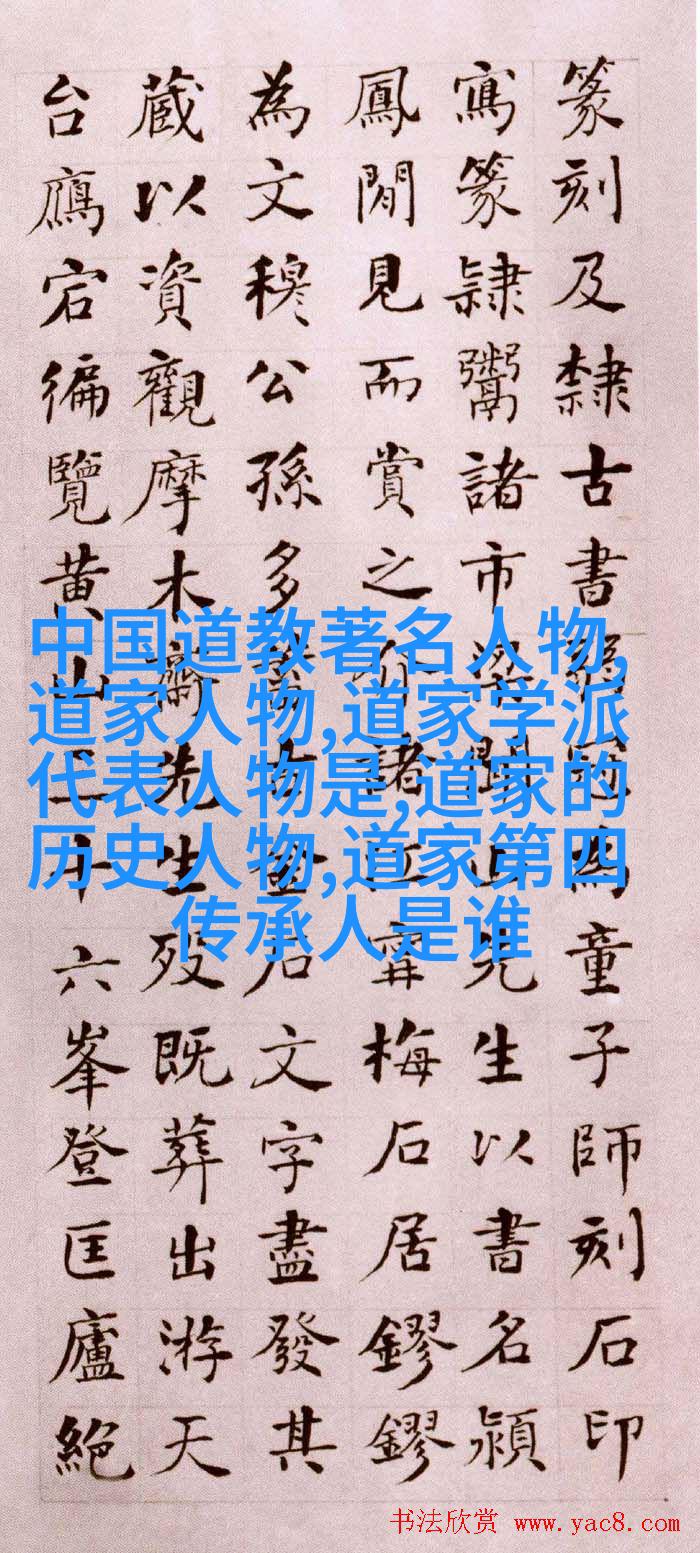 篆刻及隸古書為童子師刻石印
寫篆隸鬻諸市聞山先生以書名潁
鳳閒見而賞之介諸江寧梅石居鏐鏐
為文穆公孫多古金石文字盡發其
藏以資觀摩木齋先生歿既葬出游天
台鴈宕徧覽黄山三十六峯登匡廬絕
中国道教著名人物,
道家人物,道家学派
代表人物是,道家的
历史人物,道家第四
传承人是谁
书法欣赏 www.yac8.com